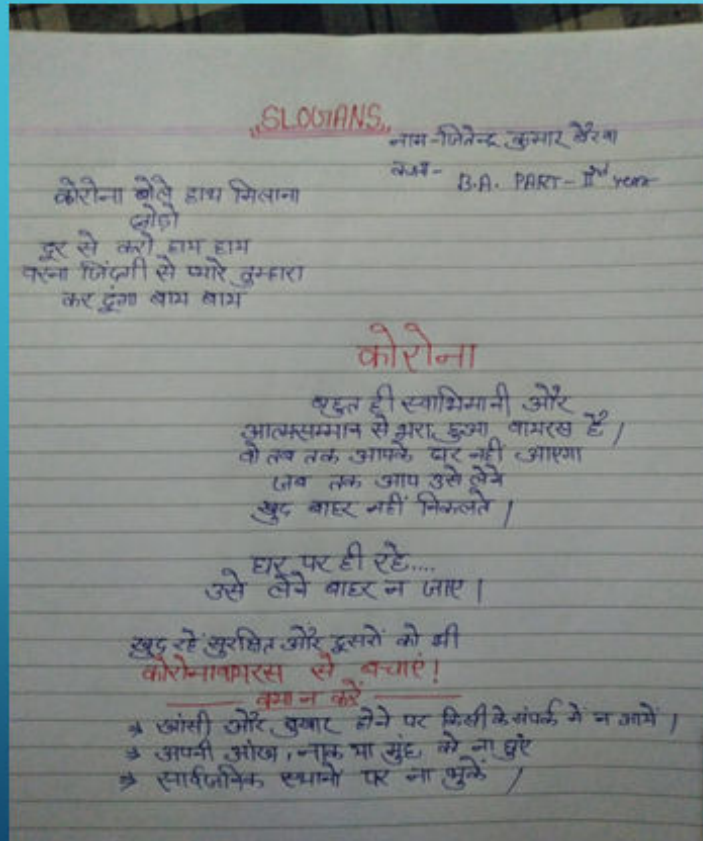 "SLOGANS"
नाम - जितेन्द्र कुमार बैरवा
कक्षा - B.A. PART - IInd year
कोरोना बोले हाथ मिलाना
छोड़ो
दूर से करो हाय हाय
वरना जिंदगी से प्यारे तुम्हारा
कर दूंगा बाय बाय
कोरोना
बहुत ही स्वाभिमानी और
आत्मसम्मान से भरा हुआ वायरस है।
वो तब तक आपके घर नहीं आएगा
जब तक आप उसे लेने
खुद बाहर नहीं निकलते।
घर पर ही रहे....
उसे लेने बाहर न जाए।
खुद रहें सुरक्षित और दूसरों को भी
कोरोनावायरस से बचाएं!
क्या न करें
→ खांसी और बुखार होने पर किसी के संपर्क में न आयें।
→ अपनी आंख, नाक या मुंह को ना छुएं
→ सार्वजनिक स्थानों पर ना थुकें।